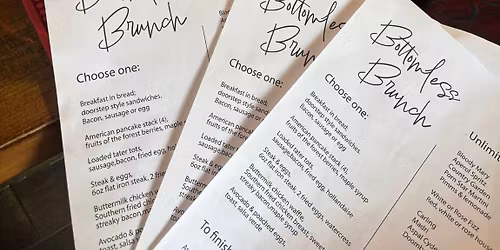 Breakfast in bread;
doorstep style sandwiches.
Bacon, sausage or egg
American pancake stack (4),
fruits of the forest berries, maple
Loaded tater tots,
sausage, bacon, fried egg,
Steak & eggs,
6oz flat iron steak, 2 fried
Buttermilk chicken
Southern fried
streaky bacon,
Avocado &
toast, salsa
Brunch
Choose one:
Bottomless
Brun
Choose one:
Breakfast in bread;
doorstep style
Bacon, sausage
American
fruits of the
Loaded
sausage,
Steak &
6oz flat
Buttermilk
Southern
streaky
Avocado
toast,
To finish
Bottomless
Brunch
Choose one:
Breakfast in bread;
doorstep style sandwiches.
Bacon, sausage or egg
American pancake stack (4),
fruits of the forest berries, maple syrup
Loaded tater tots,
sausage, bacon, fried egg, hollandaise
Steak & eggs,
6oz flat iron steak, 2 fried eggs, watercress
Buttermilk chicken waffle,
Southern fried chicken breast, sweet waffle,
streaky bacon, maple syrup
Avocado & poached eggs,
toast, salsa verde
Unlimi
Bloody Mary
Apricot Spritz
Country Garden
Porn Star Martini
Pink Lemonade
White or Rose Fizz
Red, white or rose
Carling
Madri
Aspall
Doom